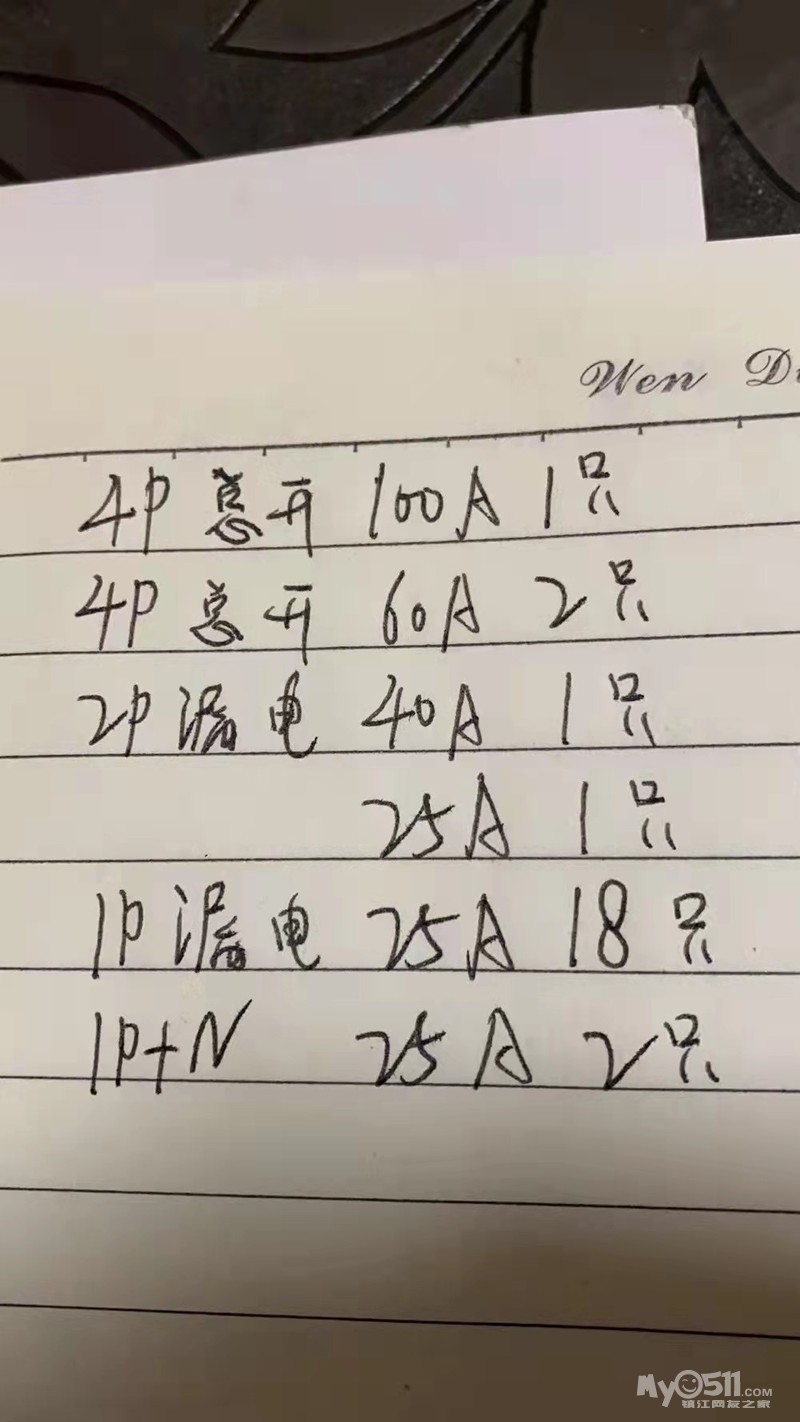 Wen D
4P 总开 100A 1只
4P 总开 60A 2只
2P 漏电 40A 1只
25A 1只
1P 漏电 25A 18只
1P+N 25A 2只
My0511.com
镇江网友之家